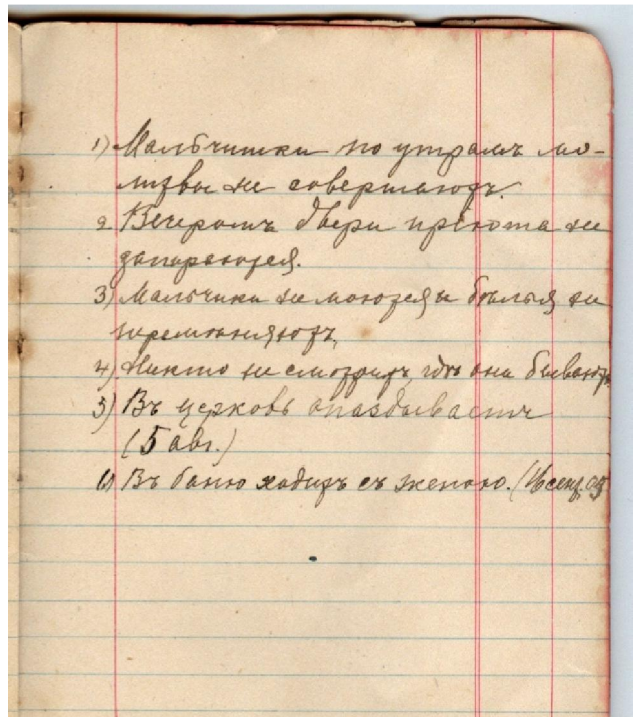 1) Мальчишки по утрамъ мо-
литвы не совершаютъ.
2 Вечеромъ двери пріюта не
запираются.
3) Мальчики не моются и бѣлья не
перемѣняютъ,
4) Никто не смотритъ, гдѣ они бываютъ
5) Въ церковь опаздываетъ
(5 авг.)
6) Въ баню ходитъ съ женою.